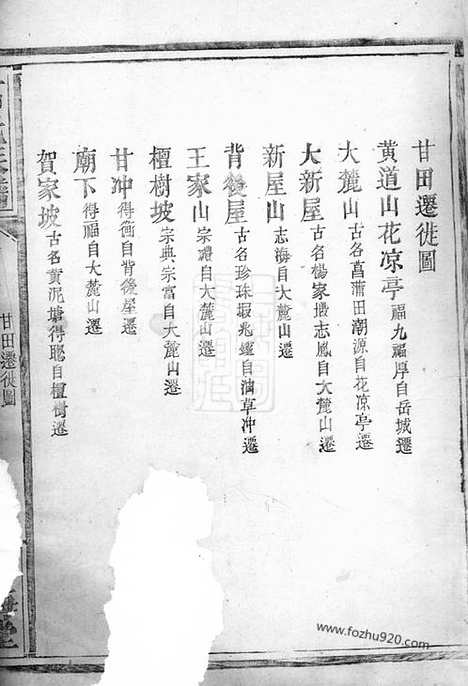 甘田遷徙圖
黄道山花凉亭福九福厚自岳城遷
大麓山古名菖蒲田潮源自花凉亭遷
大新屋古名楊家塅志鳳自大麓山遷
新屋山志海自大麓山遷
背後屋古名珍珠塅兆纓自油草冲遷
王家山宗禮自大麓山遷
檀樹坡宗典宗富自大麓山遷
甘冲得衡自背後屋遷
廟下得福自大麓山遷
賀家坡古名黄泥塘得聰自檀樹遷
甘田遷徙圖
堂
www.fozhu920.com